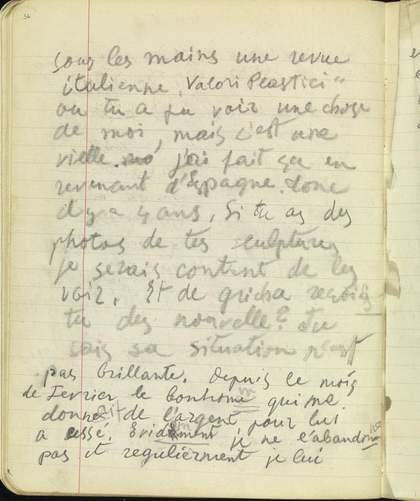 34
sous les mains une revue
italienne „Valori Plastici"
ou tu a pu voir une chose
de moi, mais c'est une
vielle. j'ai fait ça en
revenant d'Espagne. donc
il y a 4 ans. Si tu as des
photos de tes sculptures
je serais content de les
voir. Et de grisha reçois
tu des nouvelle? Tu
sais sa situation n'est
pas brillante. Depuis le mois
de Fevrier le bonhomme qui me
donnait de l'argent pour lui
a cessé. Evidement, je ne l'abandonne
pas et regulièrment je lui